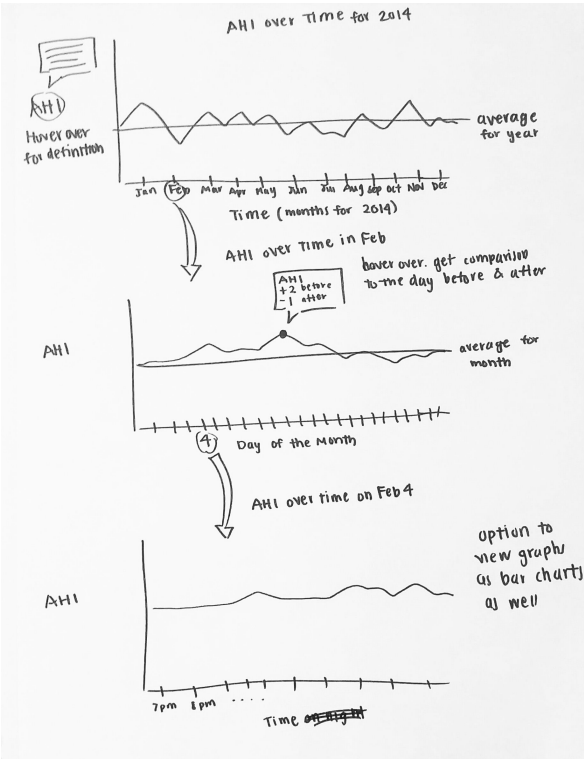 AHI over Time for 2014
AHI
Hover over
for definition
average
for year
Jan Feb Mar Apr May Jun Jul Aug Sep Oct Nov Dec
Time (months for 2014)
AHI over Time in Feb
hover over. get comparison
to the day before & after
AHI
+2 before
-1 after
AHI
average for
month
4
Day of the Month
AHI over time on Feb 4
option to
view graphs
as bar charts
as well
AHI
7pm 8pm ....
Time